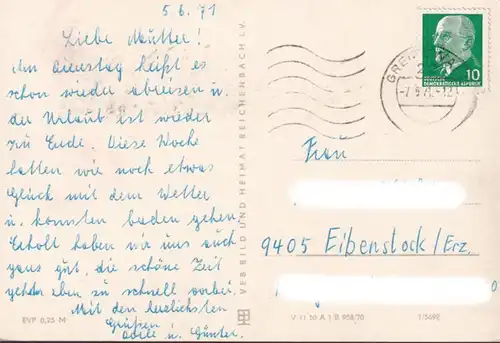 5.6.71
Liebe Mutter!
Am Dienstag heißt es
schon wieder abreisen u.
der Urlaub ist wieder
zu Ende. Diese Woche
hatten wir noch etwas
Glück mit dem Wetter
u. konnten baden gehen.
Erholt haben wir uns auch
ganz gut, die schöne Zeit
geht eben zu schnell vorbei.
Mit den herzlichsten
Grüßen
u. Günter.
EVP 0,25 M
VEB BILD UND HEIMAT REICHENBACH I. V.
10
DEMOKRATISCHE REPUBLIK
Frau
9405 Eibenstock/Erz.
V 11 50 A 1 B 958/70
1/569E